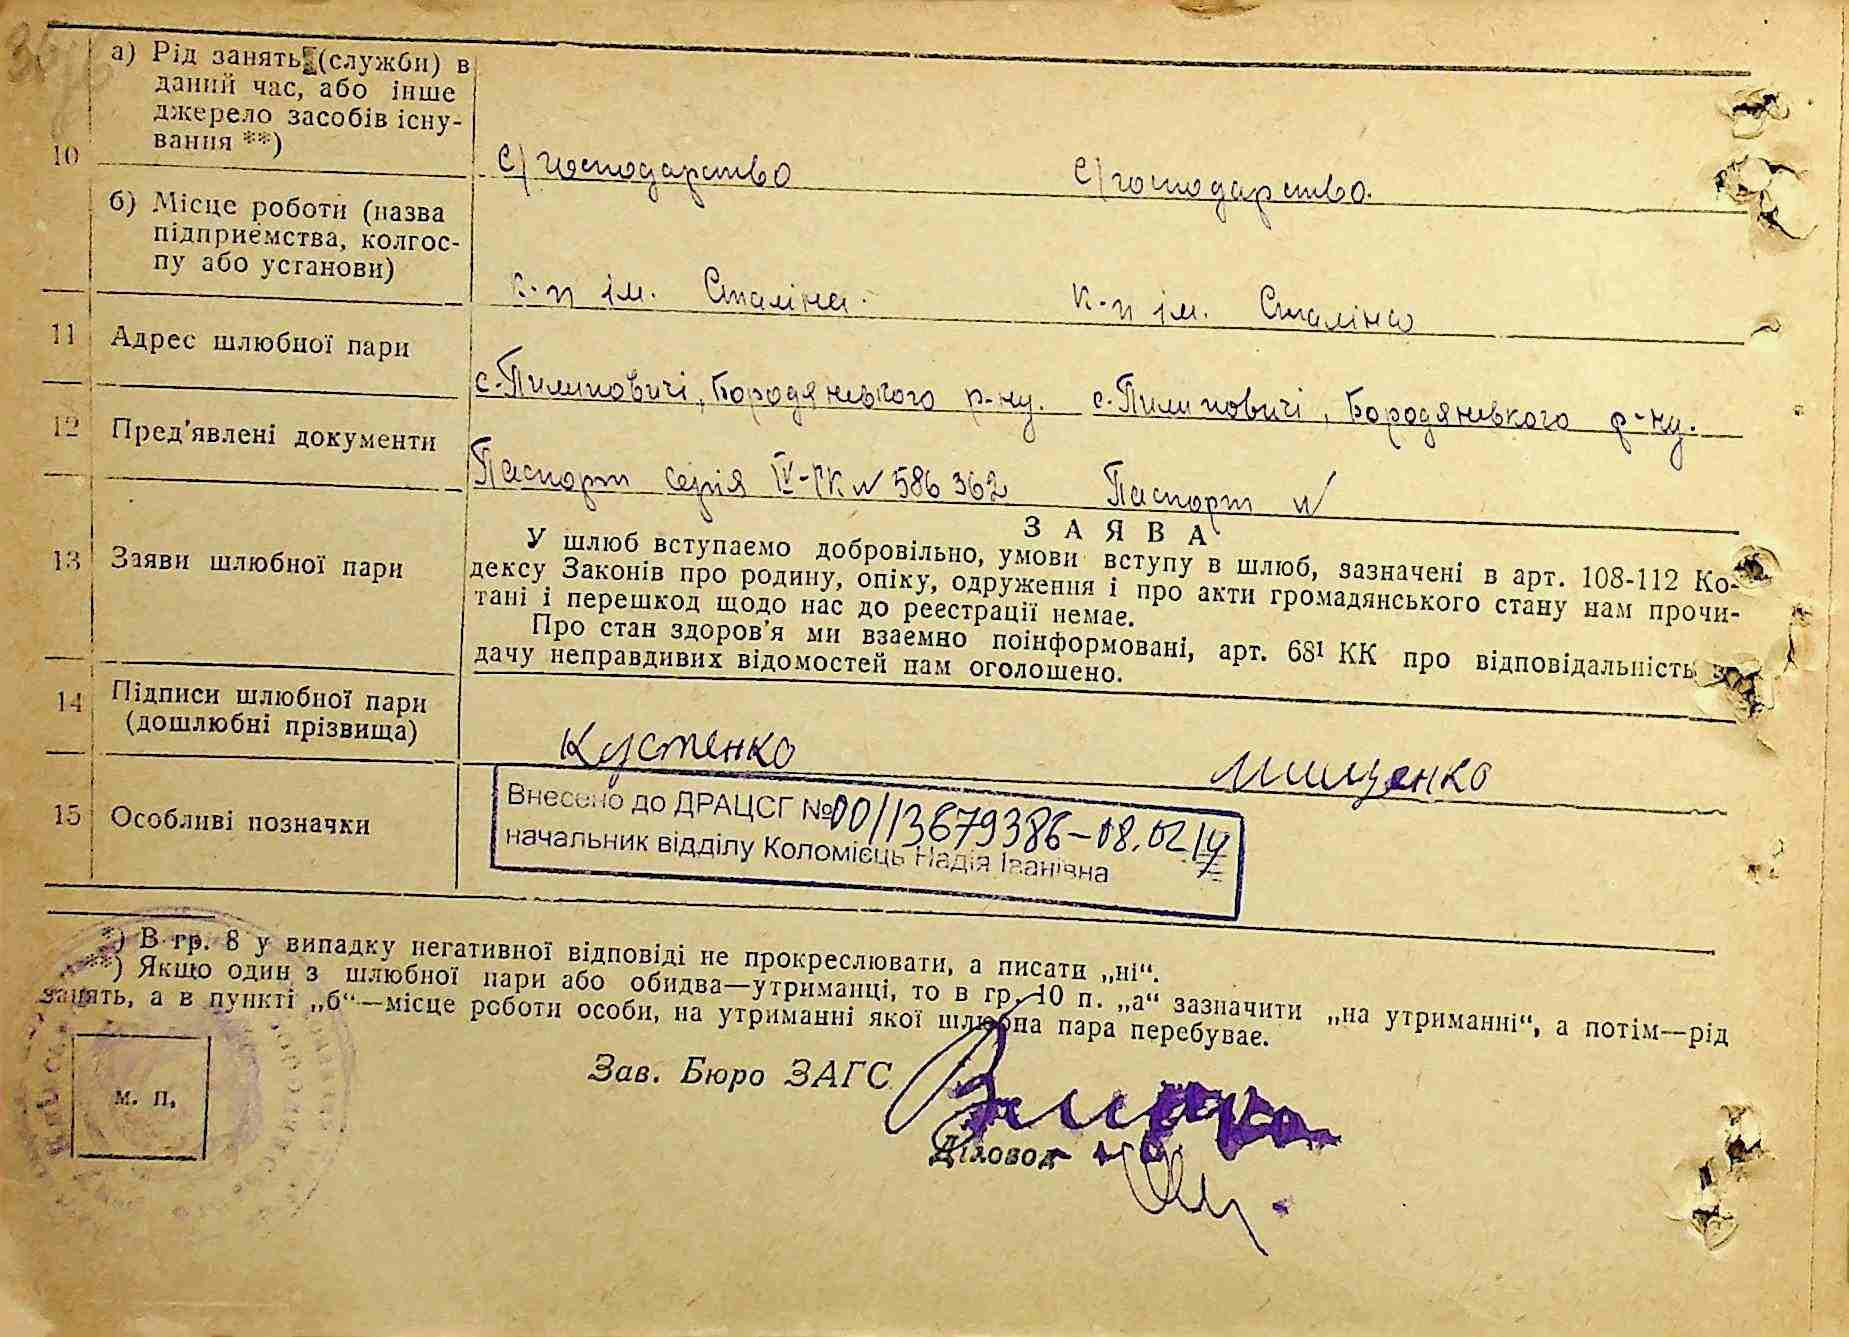 а) Рід занять (служби) в
даний час, або інше
джерело засобів існу-
вання **)
10
с/господарство с/господарство.
б) Місце роботи (назва
підприємства, колгос-
пу або установи)
к-п ім. Сталіна. к-п ім. Сталіна
11 Адрес шлюбної пари
с. Пилиповичі, Бородянського р-ну. с. Пилиповичі, Бородянського р-ну.
12 Пред'явлені документи
Паспорт серія IV-ГК № 586362 Паспорт №
13 Заяви шлюбної пари
ЗАЯВА
У шлюб вступаємо добровільно, умови вступу в шлюб, зазначені в арт. 108-112 Ко-
дексу Законів про родину, опіку, одруження і про акти громадянського стану нам прочи-
тані і перешкод щодо нас до реєстрації немає.
Про стан здоров'я ми взаємно поінформовані, арт. 68¹ КК про відповідальність
дачу неправдивих відомостей нам оголошено.
14 Підписи шлюбної пари
(дошлюбні прізвища)
Кустенко Мищенко
15 Особливі позначки
Внесено до ДРАЦСГ №00113679386-08.02.14
начальник відділу Коломієць Надія Іванівна
*) В гр. 8 у випадку негативної відповіді не прокреслювати, а писати „ні“.
**) Якщо один з шлюбної пари або обидва—утриманці, то в гр. 10 п. „а“ зазначити „на утриманні“, а потім—рід
занять, а в пункті „б“—місце роботи особи, на утриманні якої шлюбна пара перебуває.
Зав. Бюро ЗАГС
м. п.
Діловод